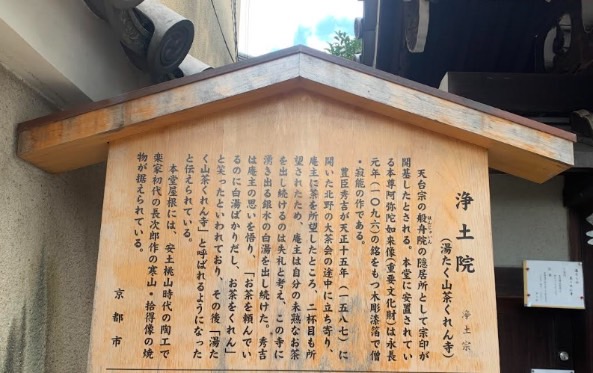 浄土院
浄土宗
（湯たく山茶くれん寺）
天台宗の般舟院の隠居所として宗印が
開基したとされる。本堂に安置されてい
る本尊阿弥陀如来像（重要文化財）は永長
元年（一〇九六）の銘をもつ木彫漆箔で僧
・寂能の作である。
豊臣秀吉が天正十五年（一五八七）に
開いた北野の大茶会の途中に立ち寄り、
庵主に茶を所望したところ、二杯目も所
望されたため、庵主は自分の未熟なお茶
を出し続けるのは失礼と考え、この寺に
湧き出る銀水の白湯を出し続けた。秀吉
は庵主の思いを悟り、「お茶を頼んでい
るのに白湯ばかりだし、お茶をくれん」
と笑ったといわれており、その後「湯た
く山茶くれん寺」と呼ばれるようになった
と伝えられている。
本堂屋根には、安土桃山時代の陶工で
楽家初代の長次郎作の寒山・拾得像の焼
物が据えられている。
京都市